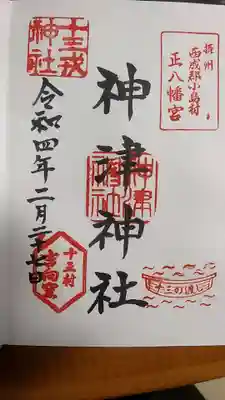 摂州
西成郡小島村
正八幡宮
神津神社
十三戎
神社
令和四年二月二十七日
十三村
十三の渡し